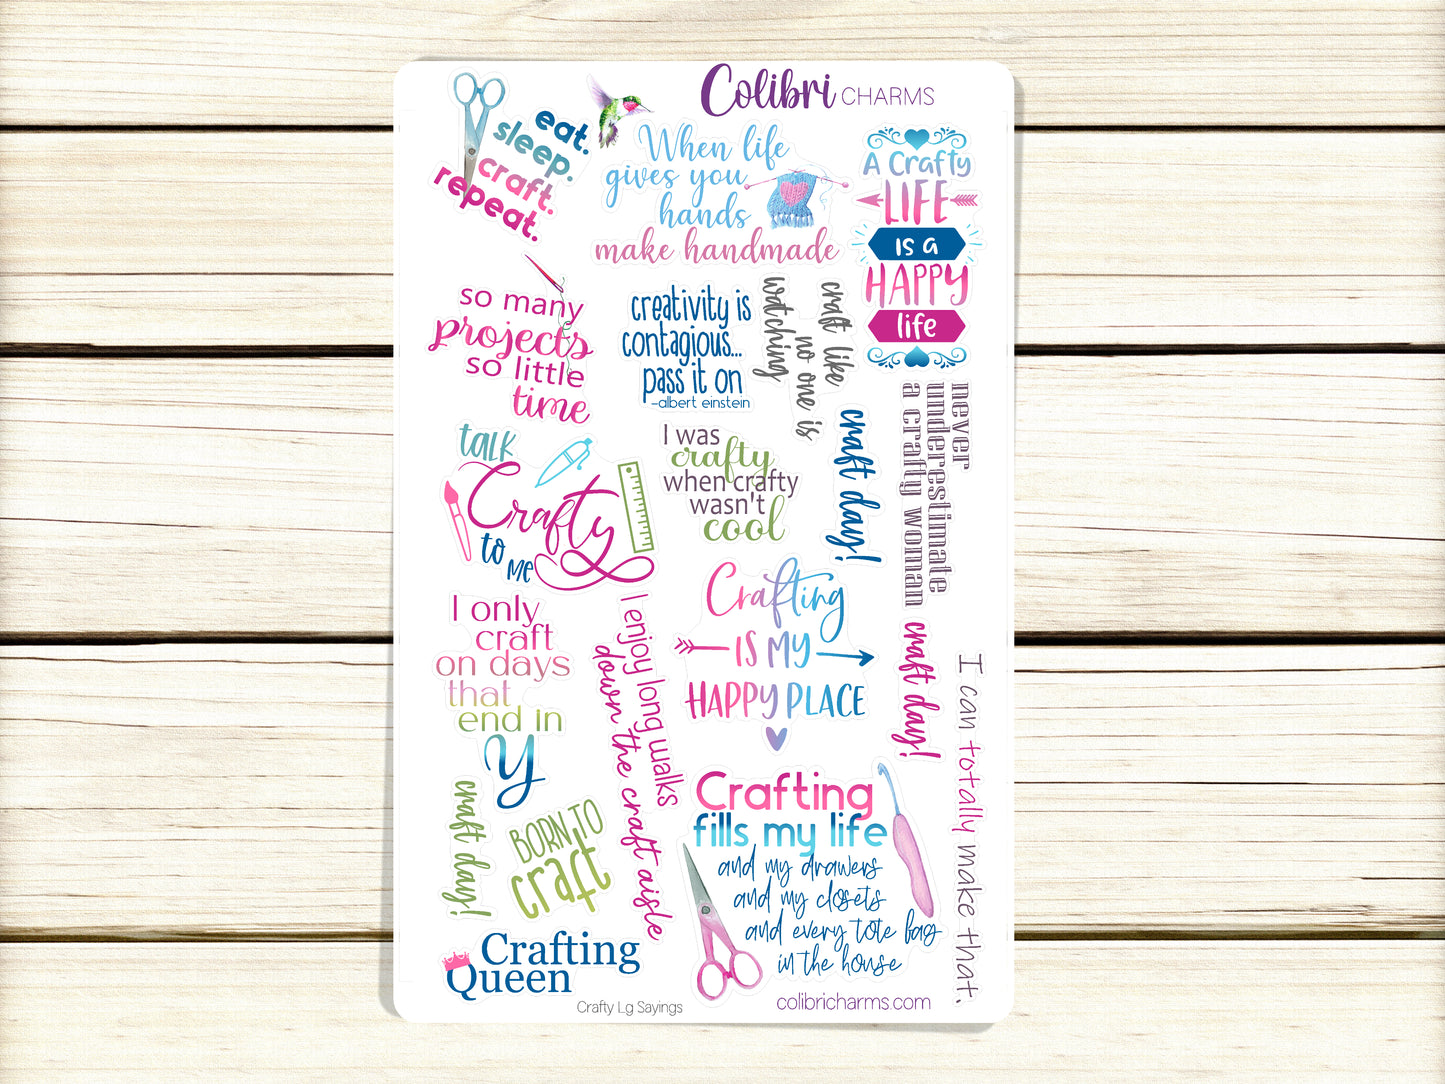 Colibri CHARMS
eat.
sleep.
craft.
repeat.
When life
gives you
hands
make handmade
A Crafty
LIFE
is a
HAPPY
life
so many
projects
so little
time
creativity is
contagious...
pass it on
-albert einstein
craft like
no one is
watching
never
underestimate
a crafty woman
talk
Crafty
to
me
I was
crafty
when crafty
wasn't
cool
craft day!
I only
craft
on days
that
end in
y
I enjoy long walks
down the craft aisle
Crafting
IS MY
HAPPY PLACE
craft day!
I can totally make that.
craft day!
BORN TO
craft
Crafting
fills my life
and my drawers
and my closets
and every tote bag
in the house
Crafting
Queen
Crafty Lg Sayings
colibricharms.com